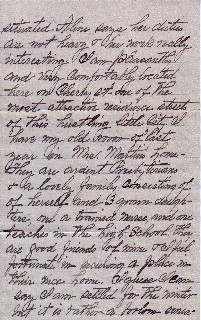 situated. Aline says her duties
are not heavy & the work really
interesting. I am pleasantly
and very comfortably located
here on Cherry St. One of the
most attractive residence streets
of this hustling little City. I
have my old room of last
year in Mrs. Martin's home -
They are ardent Presbyterians
& a lovely family consisting of
of herself and 3 grown daugh-
ters one a trained nurse, and one
teaches in the High School. They
are good friends of mine & I feel
fortunate in securing a place in
their nice home. I guess I can
say I am settled for the winter
but it is rather a